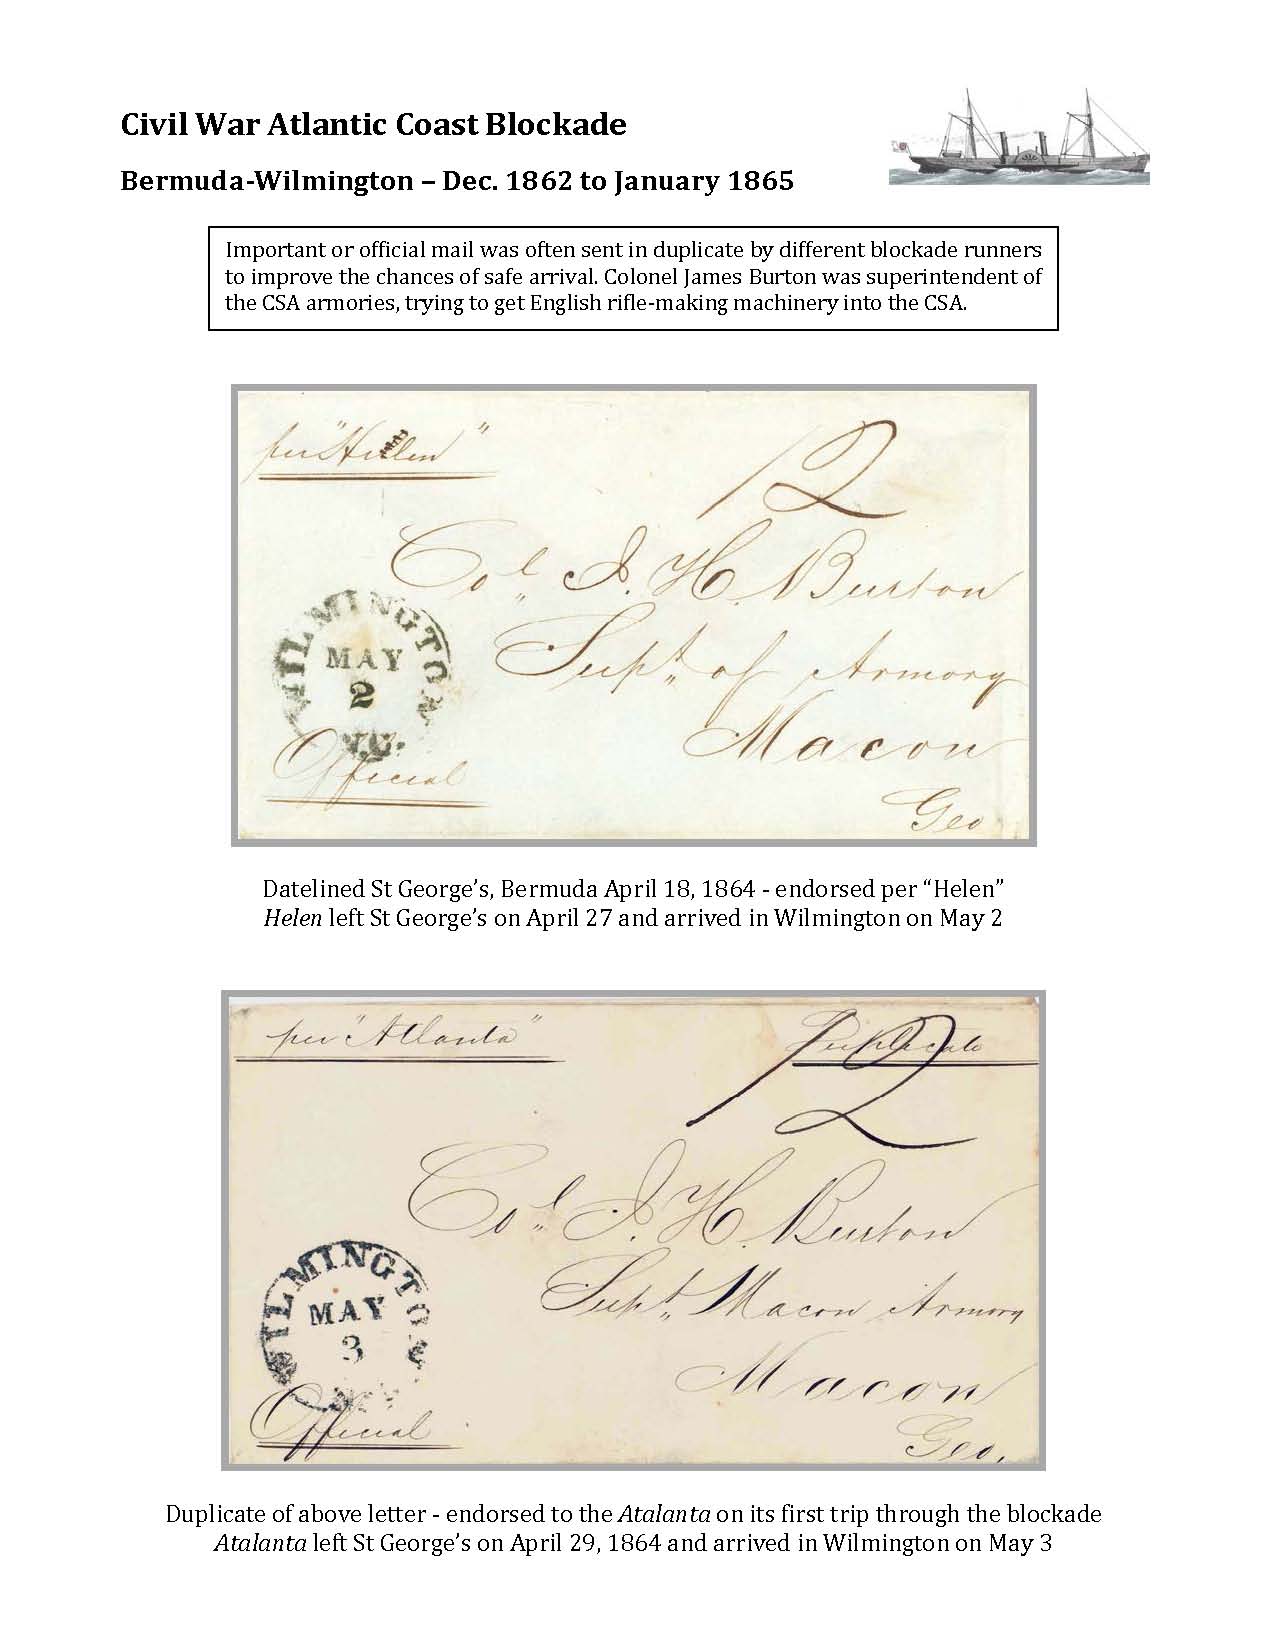 Civil War Atlantic Coast Blockade
Bermuda-Wilmington – Dec. 1862 to January 1865
Important or official mail was often sent in duplicate by different blockade runners
to improve the chances of safe arrival. Colonel James Burton was superintendent of
the CSA armories, trying to get English rifle-making machinery into the CSA.
per "Hellen"
12
Col. J. H. Burton
Supt. of Armory
Macon
Geo
WILMINGTON
MAY
2
N.C.
Official
Datelined St George's, Bermuda April 18, 1864 - endorsed per “Helen”
Helen left St George's on April 27 and arrived in Wilmington on May 2
per "Atlanta"
Duplicate
12
Col. J. H. Burton
Supt. Macon Armory
Macon
Geo.
WILMINGTON
MAY
3
Official
Duplicate of above letter - endorsed to the Atalanta on its first trip through the blockade
Atalanta left St George's on April 29, 1864 and arrived in Wilmington on May 3